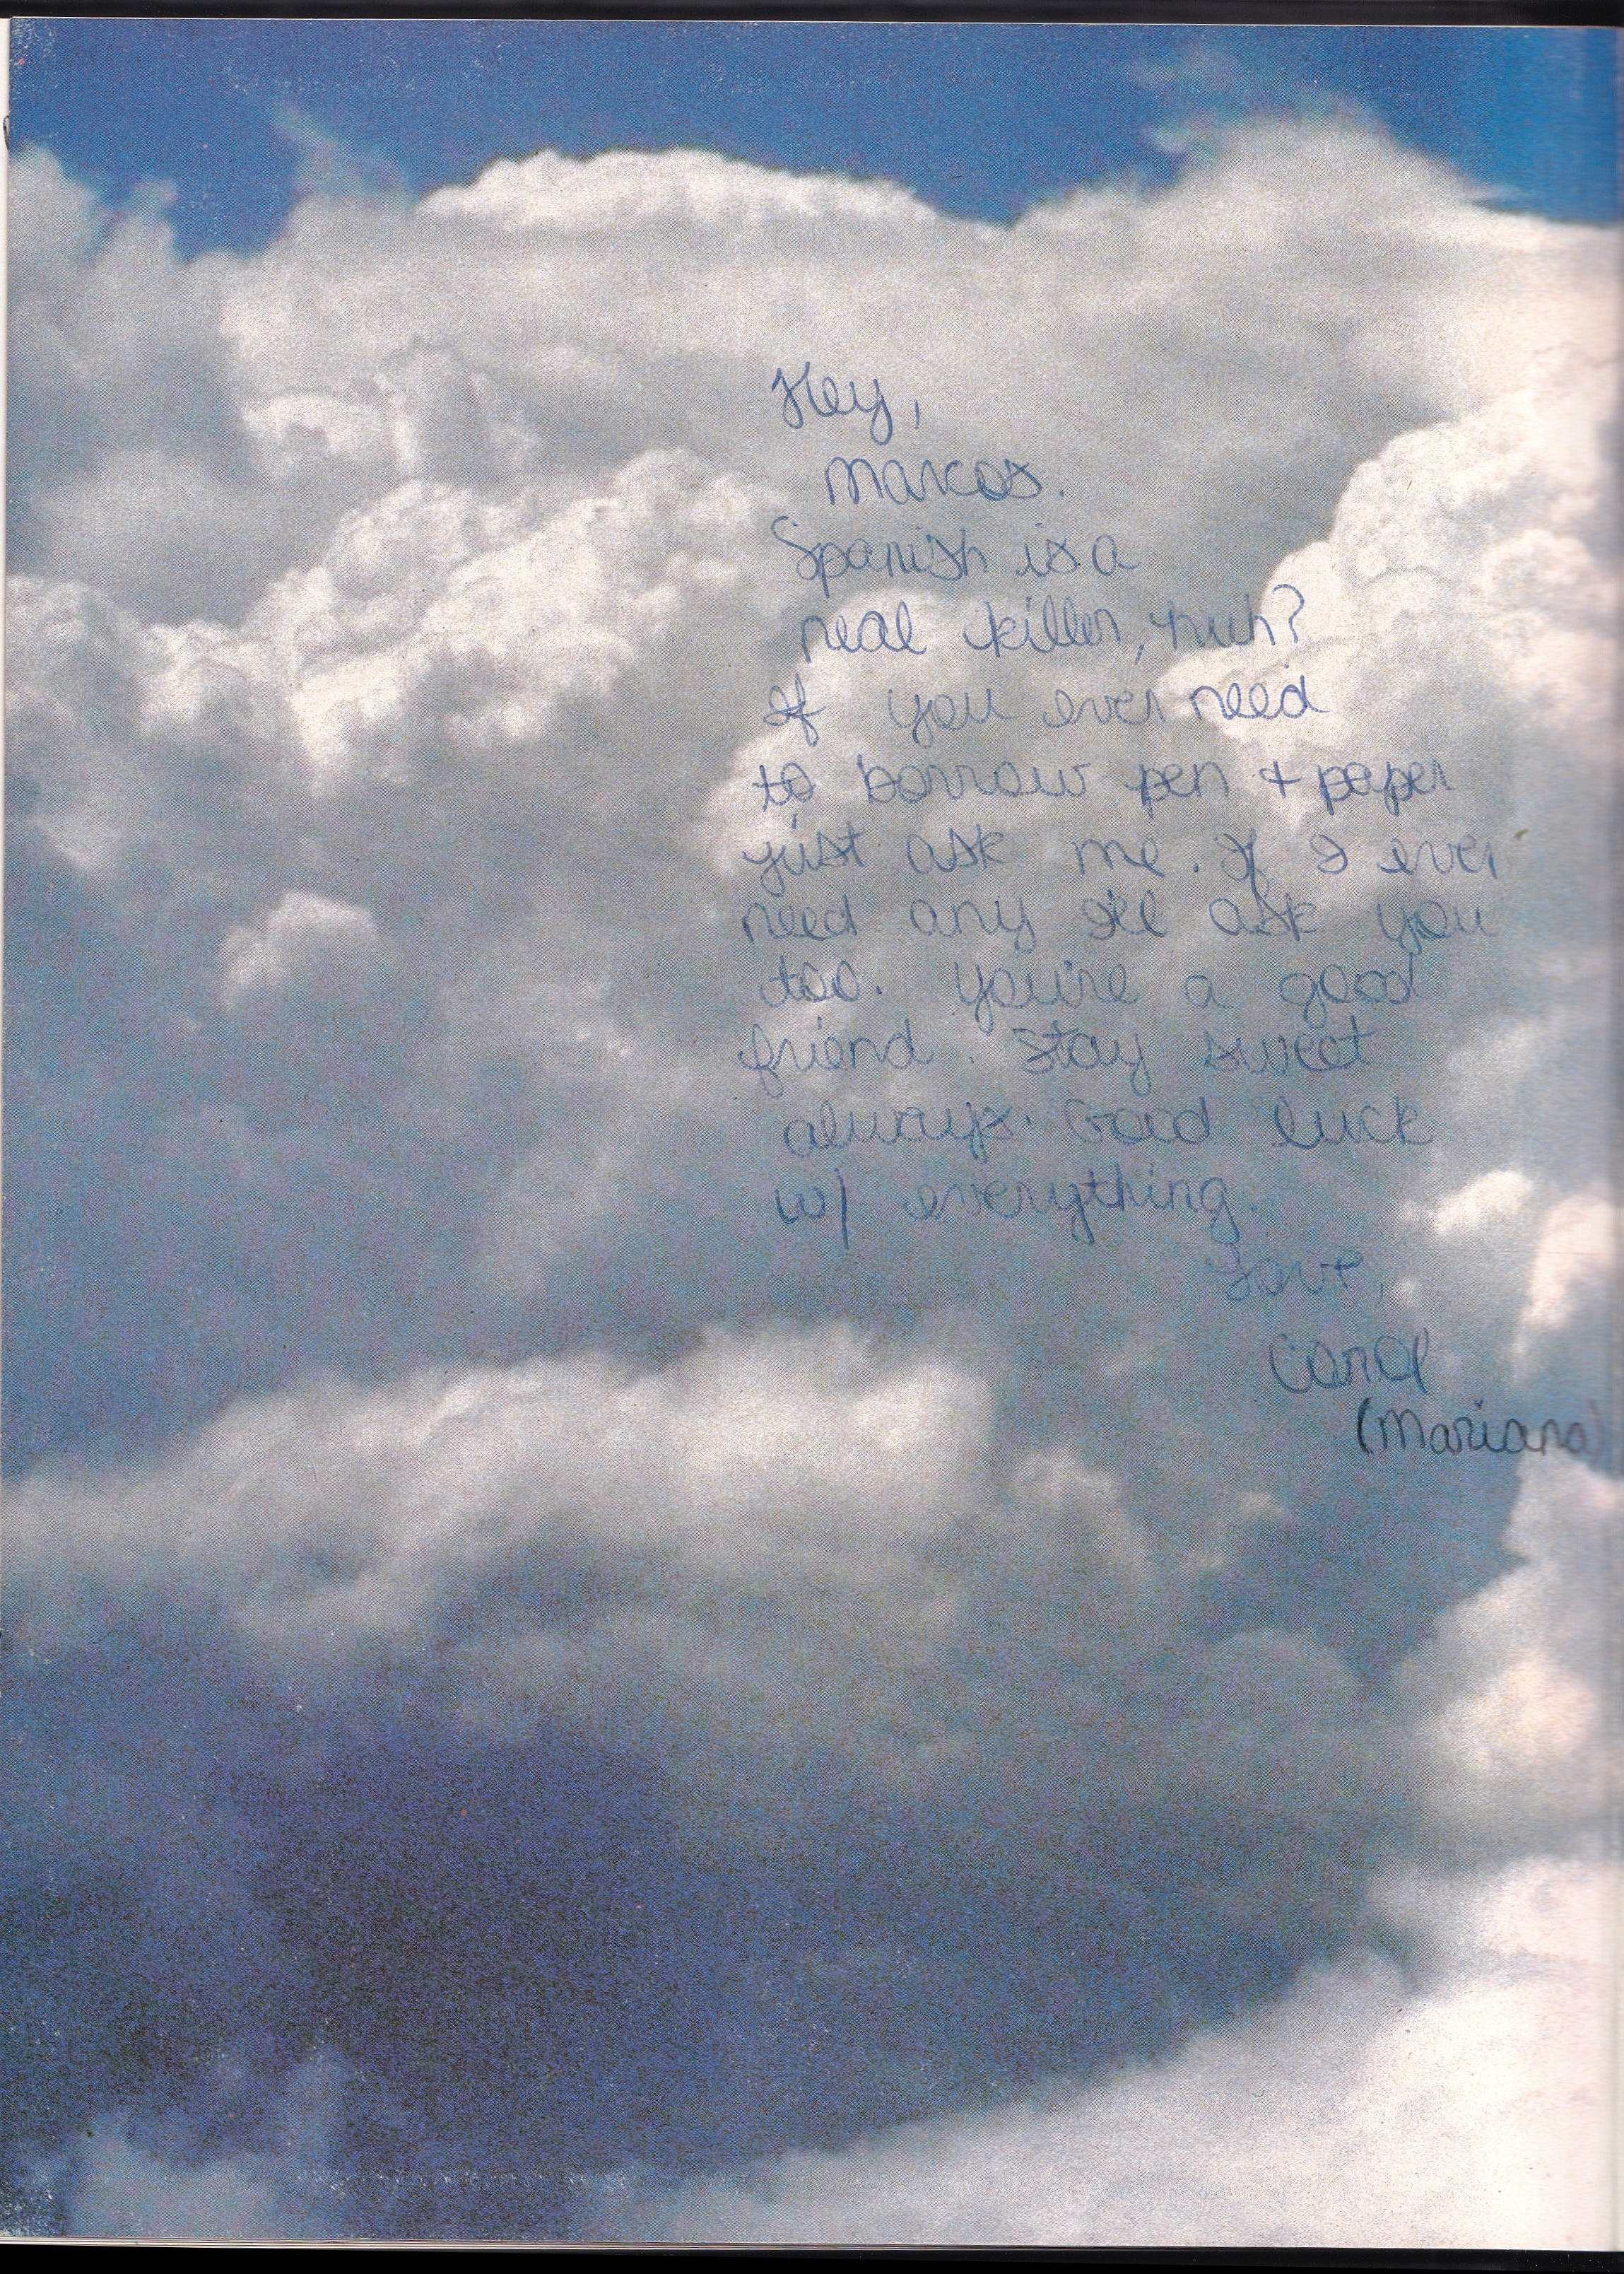 Hey,
Marcos.
Spanish is a
real killer, huh?
If you ever need
to borrow pen + paper
just ask me. If I ever
need any I'll ask you
too. You're a good
friend. Stay sweet
always. Good luck
w/ everything.
Love,
Carol
(Mariana)